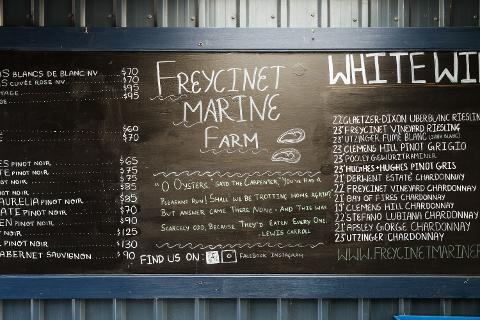 S BLANCS DE BLANC NV $70
S CUVÉE ROSE NV $75
TAGE $95
GE $95
$60
$70
ES PINOT NOIR $65
PINOT NOIR $75
PINOT NOIR $85
AURELIA PINOT NOIR $85
ATE PINOT NOIR $70
EN PINOT NOIR $90
NOIR $125
L PINOT NOIR $130
ABERNET SAUVIGNON $90
FREYCINET
MARINE
FARM
"O OYSTERS," SAID THE CARPENTER, "YOU'VE HAD A
PLEASANT RUN! SHALL WE BE TROTTING HOME AGAIN?"
BUT ANSWER CAME THERE NONE - AND THIS WAS
SCARCELY ODD, BECAUSE THEY'D EATEN EVERY ONE.
-LEWIS CARROLL
FIND US ON: FACEBOOK INSTAGRAM
WHITE WIN
22 GLAETZER-DIXON UBERBLANC RIESLIN
23 FREYCINET VINEYARD RIESLING
23 UTZINGER FUMÉ BLANC
23 CLEMENS HILL PINOT GRIGIO
23 POOLEY GEWURZTRAMINER
23 HUGHES & HUGHES PINOT GRIS
21 DERWENT ESTATE CHARDONNAY
22 FREYCINET VINEYARD CHARDONNAY
21 BAY OF FIRES CHARDONNAY
19 CLEMENS HILL CHARDONNAY
22 STEFANO LUBIANA CHARDONNAY
21 APSLEY GORGE CHARDONNAY
23 UTZINGER CHARDONNAY
WWW.FREYCINETMARINEF